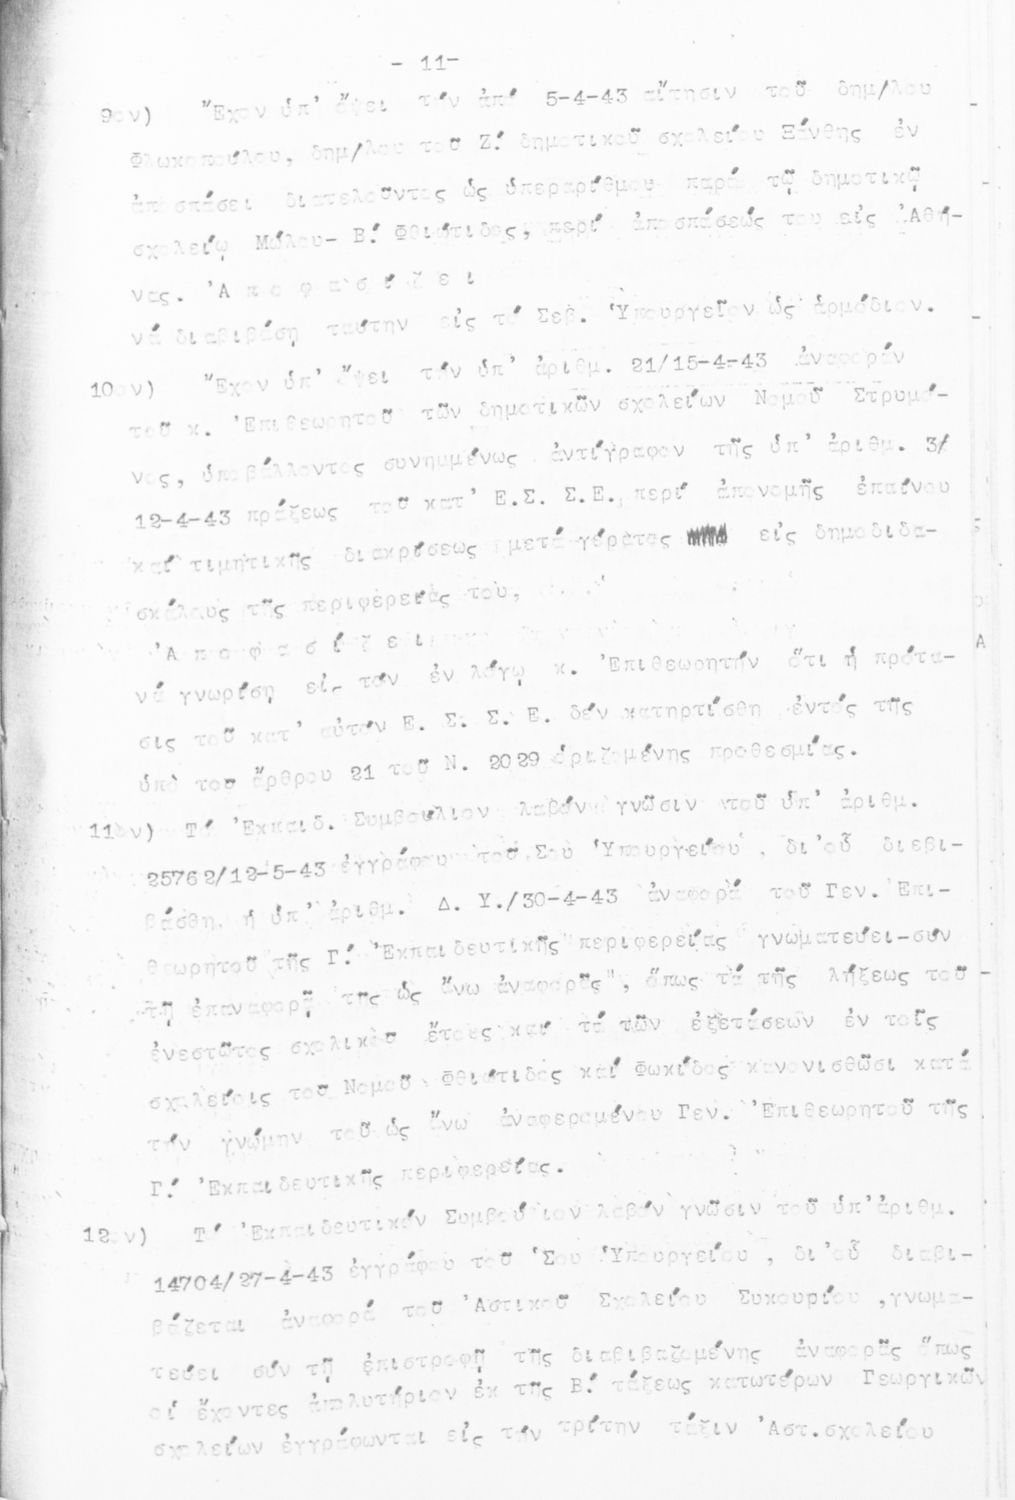 - 11-
9ον) Ἔχον ὑπ' ὄψει τήν ἀπό 5-4-43 αἴτησιν τοῦ δημ/λου
Φλωκοπούλου, δημ/λου τοῦ Ζ! δημοτικοῦ σχολείου Ξάνθης ἐν
ἀποσπάσει διατελοῦντος ὡς ὑπεραρίθμου παρά τῷ δημοτικῷ
σχολείῳ Μώλου- Β! Φθιώτιδος, περί ἀποσπάσεώς του εἰς Ἀθή-
νας. Ἀ π ο φ α σ ί ζ ε ι
νά διαβιβάσῃ ταύτην εἰς τό Σεβ. Ὑπουργεῖον ὡς ἁρμόδιον.
10ον) Ἔχον ὑπ' ὄψει τήν ὑπ' ἀριθμ. 21/15-4-43 ἀναφοράν
τοῦ κ. Ἐπιθεωρητοῦ τῶν δημοτικῶν σχολείων Νομοῦ Στρυμό-
νος, ὑποβάλλοντος συνημμένως ἀντίγραφον τῆς ὑπ' ἀριθμ. 3/
12-4-43 πράξεως τοῦ κατ' Ε.Σ. Σ.Ε. περί ἀπονομῆς ἐπαίνου
καί τιμητικῆς διακρίσεως μετά γέρατος εἰς δημοδιδα-
σκάλους τῆς περιφερείας του,
Ἀ π ο φ α σ ί ζ ε ι
νά γνωρίσῃ εἰς τόν ἐν λόγῳ κ. Ἐπιθεωρητήν ὅτι ἡ πρότα-
σις τοῦ κατ' αὐτόν Ε. Σ. Σ. Ε. δέν κατηρτίσθη ἐντός τῆς
ὑπό του ἄρθρου 21 τοῦ Ν. 2029 ὁριζομένης προθεσμίας.
11ον) Τό Ἐκπαιδ. Συμβούλιον λαβόν γνῶσιν τοῦ ὑπ' ἀριθμ.
25762/12-5-43 ἐγγράφου τοῦ Σοῦ Ὑπουργείου, δι'οὗ διεβι-
βάσθη ἡ ὑπ' ἀριθμ. Δ. Υ./30-4-43 ἀναφορά τοῦ Γεν. Ἐπι-
θεωρητοῦ τῆς Γ! Ἐκπαιδευτικῆς περιφερείας γνωματεύει-σύν
τῇ ἐπαναφορᾷ της ὡς ἄνω ἀναφορᾶς", ὅπως τά τῆς λήξεως τοῦ -
ἐνεστῶτος σχολικοῦ ἔτους καί τά τῶν ἐξετάσεων ἐν τοῖς
σχολείοις τοῦ Νομοῦ Φθιώτιδος καί Φωκίδος κανονισθῶσι κατά
τήν γνώμην τοῦ ὡς ἄνω ἀναφερομένου Γεν. Ἐπιθεωρητοῦ τῆς
Γ! Ἐκπαιδευτικῆς περιφερείας.
12ον) Τό Ἐκπαιδευτικόν Συμβούλιον λαβόν γνῶσιν τοῦ ὑπ'ἀριθμ.
14704/27-4-43 ἐγγράφου τοῦ Σου Ὑπουργείου, δι'οὗ διαβι-
βάζεται ἀναφορά τοῦ Ἀστικοῦ Σχολείου Συκουρίου ,γνωμα-
τεύει σύν τῇ ἐπιστροφῇ τῆς διαβιβαζομένης ἀναφορᾶς ὅπως
οἱ ἔχοντες ἀπολυτήριον ἐκ τῆς Β! τάξεως κατωτέρων Γεωργικῶν
σχολείων ἐγγράφωνται εἰς τήν τρίτην τάξιν Ἀστ.σχολείου